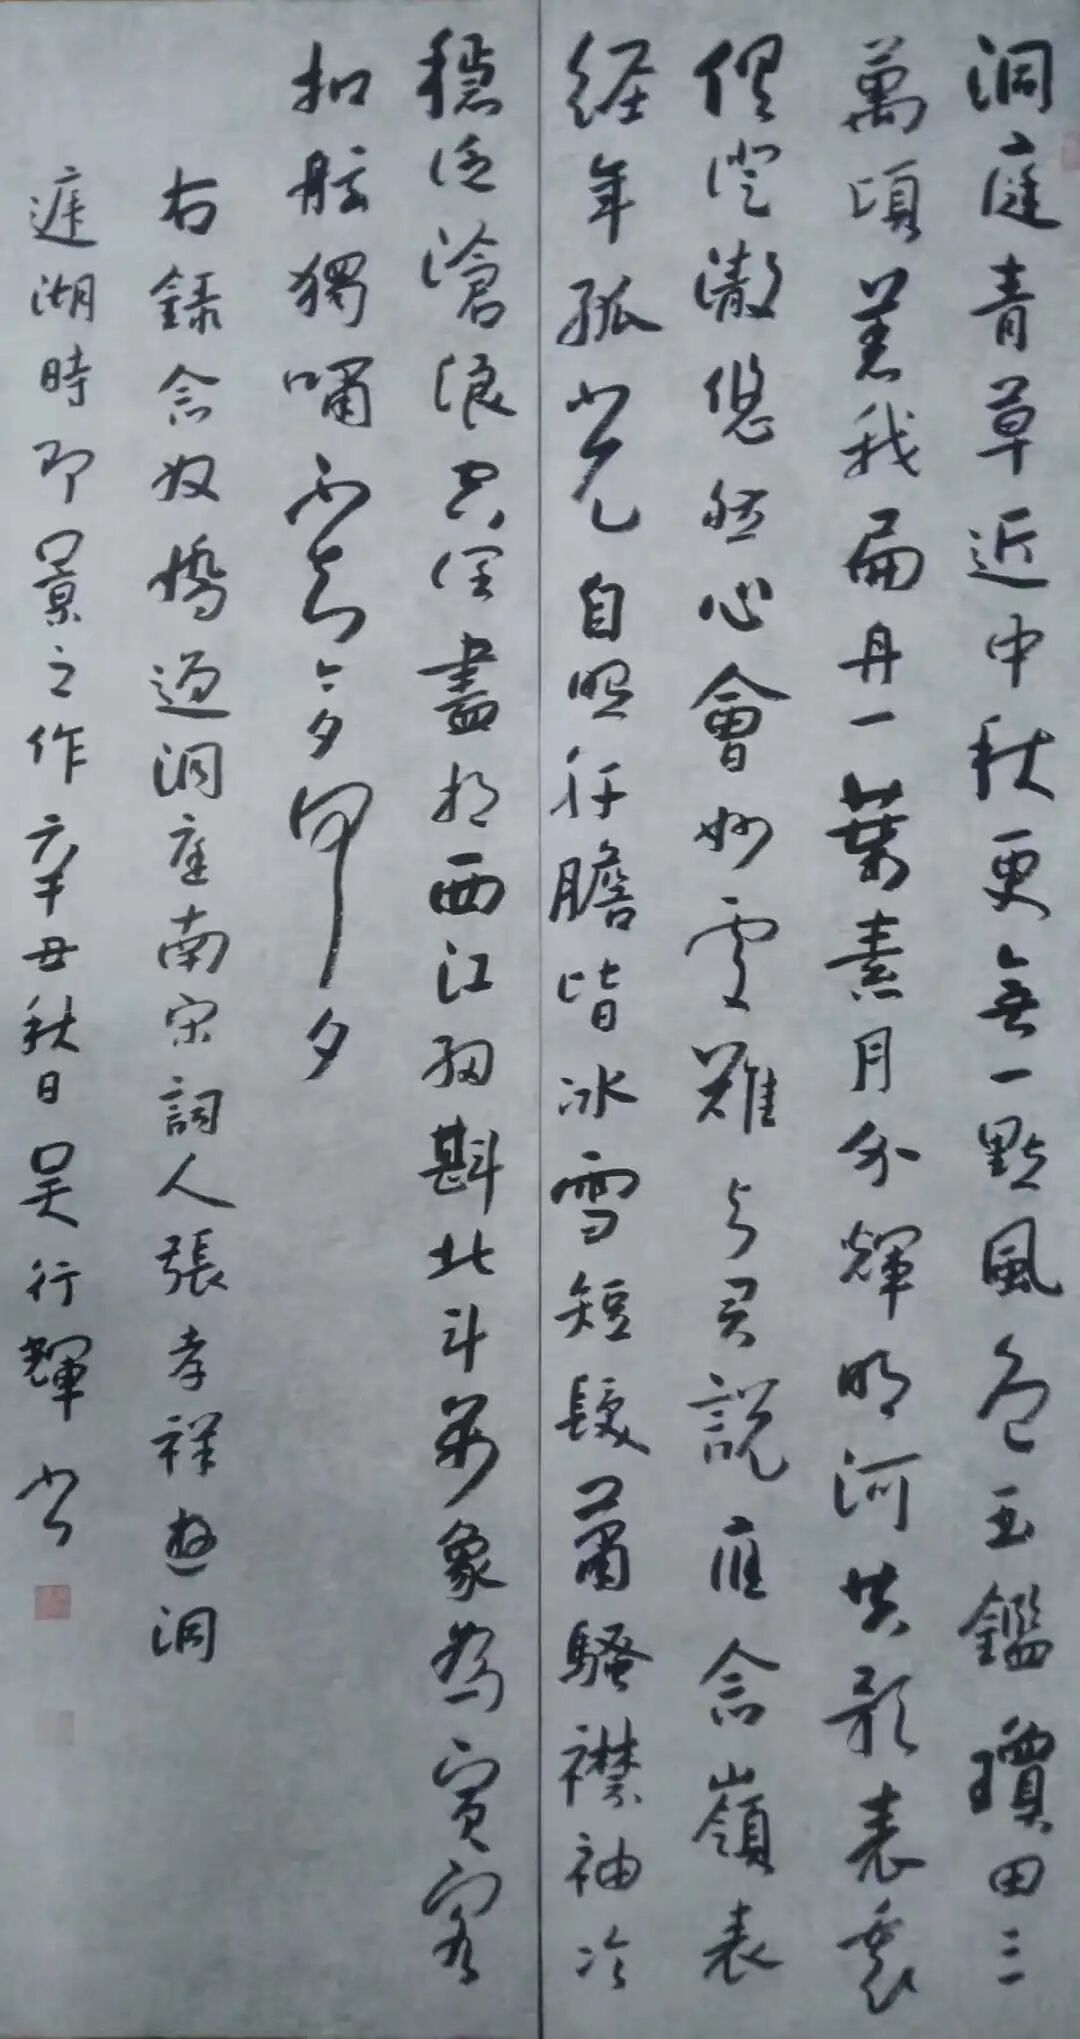 洞庭青草近中秋更無一點風色玉鑑瓊田三
萬頃著我扁舟一葉素月分輝明河共影表裏
俱澄澈悠然心會妙處難與君說應念嶺表
經年孤光自照肝膽皆冰雪短髮蕭騷襟袖冷
穩泛滄浪空闊盡挹西江細斟北斗萬象為賓客
扣舷獨嘯不知今夕何夕
右錄念奴嬌過洞庭南宋詞人張孝祥遊洞
庭湖時即景之作辛丑秋日吳行輝書